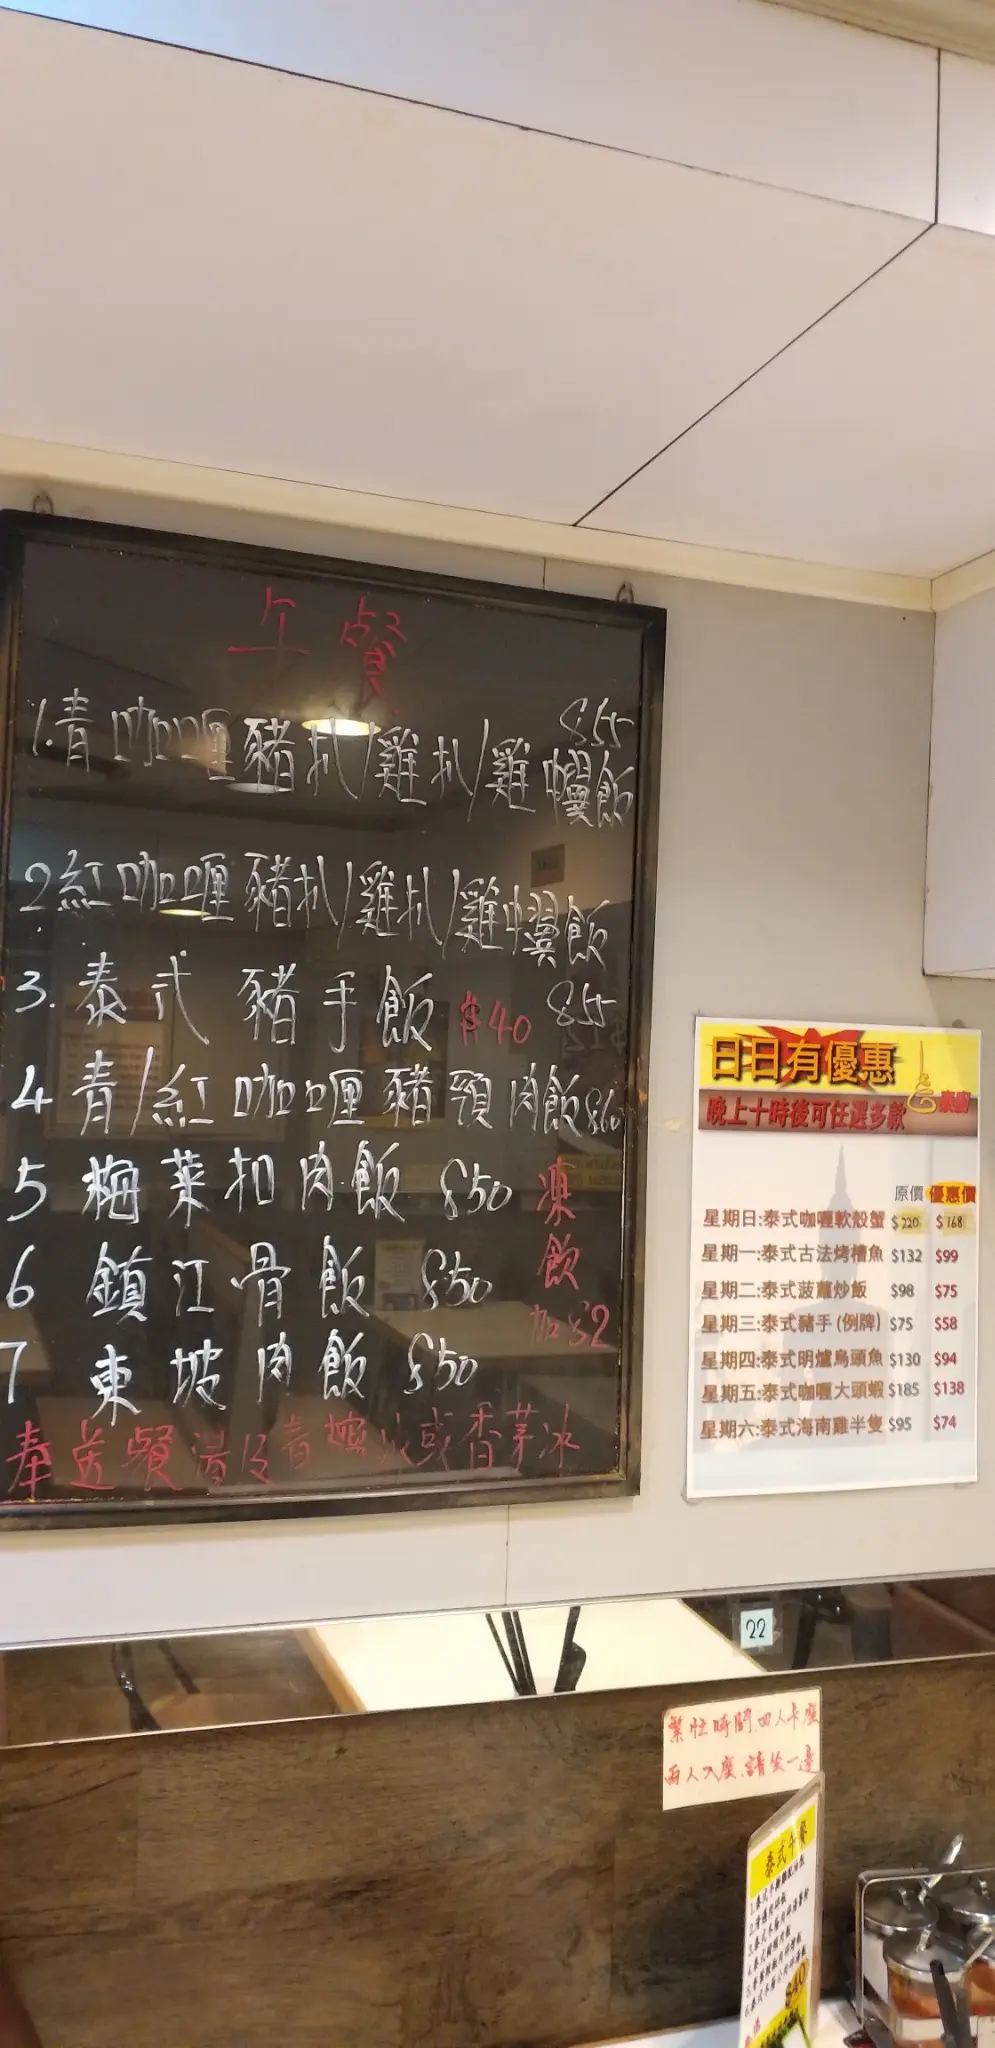 午餐
$55
1.青咖喱豬扒/雞扒/雞中翼飯
2紅咖喱豬扒/雞扒/雞中翼飯
3.泰式 豬手飯 $40 $55
4青/紅咖喱豬頸肉飯$60
5 梅菜扣肉飯 $50
6 鎮江骨飯 $50
7 東坡肉飯 $50
凍飲加$2
奉送餐湯及青檸冰或香茅冰
日日有優惠
泰廚
晚上十時後可任選多款
原價 優惠價
星期日:泰式咖喱軟殼蟹 $220 $168
星期一:泰式古法烤檳魚 $132 $99
星期二:泰式菠蘿炒飯 $98 $75
星期三:泰式豬手(例牌) $75 $58
星期四:泰式明爐烏頭魚 $130 $94
星期五:泰式咖喱大頭蝦 $185 $138
星期六:泰式海南雞半隻 $95 $74
22
繁忙時間,四人卡座
兩人入座,請坐一邊
泰式午餐
$40